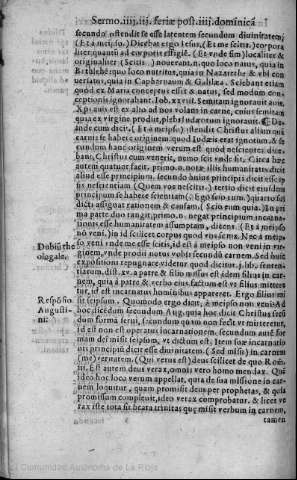 Sermo.iiij.iij. feriæ post.iiij.dominicā
secundo ostendit se esse latentem secundum diuinitatem,
(Et a meipso.) Dicebat ergo Iesus, (Et me scitis.) corpora
liter quantū ad corporis effigiē. (Et vnde sim) localiter &
originaliter (Scitis.) nouerant.n. quo loco natus, quia in
Bethleē, quo loco nutritus, quia in Nazareth, & vbi con
uersatus, quia in Capharnaum & Galilæa. Sciebant etiam
quòd ex Maria
ceptionis ignorabant. Iob.xxviij. Semitam ignorauit auis.
Xpi auis est ex alto ad nos volans in carne, cuius
quia ex virgine prodijt, plebs Iudæorum ignorauit
de cum dicit, (Et à meipso.) ostendit Christus aliam quā
carnis se habere originem quod Iudæis erat ignotum, &
cundum hanc originem verum est quod
bant, Christus cum venerit, nemo scit vnde sit. Circa hoc
autem quatuor facit. primo.n. notat illis humanitatis dicit
aliud esse principium. secundo huius principij dicit
sis nescientiam (Quem vos nescitis.) tertio dicit eiusdem
principij se habere scientiam. (Ego scio eum.)
dicti assignat rationem & causam, (Scio eum quia.) In pri
ma parte duo tangit.primo.n. negat principium incarna
tionis esse humanitatem assumptam, dicens, (Et à meipso
nō veni.)
Dubiū the
ologale.
so veni vnde me esse scitis, id est à meipso non veni in vir
ginem, vnde prodij notus vobis secundū carnem. Sed huic
expositioni repugnare videtur quod dicitur.j. lib. senten-
tiarum. dist.xv. a patre & filio missus est idem filius in car
nem, quia à patre & verbo eius factum est vt filius mittere
tur, id est incarnatus hominibus appareret. Ergo filius mi
Respōsio
Augusti-
ni:
sit seipsum. Quomodo ergo dicit, à meipso non veni? Ad
hoc dicēdum secundum Aug. quia hoc dicit Christus secū
dum formā serui, secundum quam non fecit vt mitteretur,
id est non est operatus incarnationem, secundum autē for
mam dei misit seipsum, vt dictum est. Item suæ incarnatio
nis principiū dicit esse diuinitatem. (Sed misit) in carnem
(me) vernatem. (Qui verus est) deus scilicet de quo Ro.
iij. Est autem deus verax, omnis vero homo mendax. Qui
ideo hoc loco verum appellat, quia de sua missione in car-
nem loquitur, quam promisit deus per prophetas, & quia
promissum compleuit, ideo verax comprobatur. & licet ve
rax iste tota sit beata trinitas quę misit verbum in carnem,
tamen
Comunidad Autónoma de La Rioja